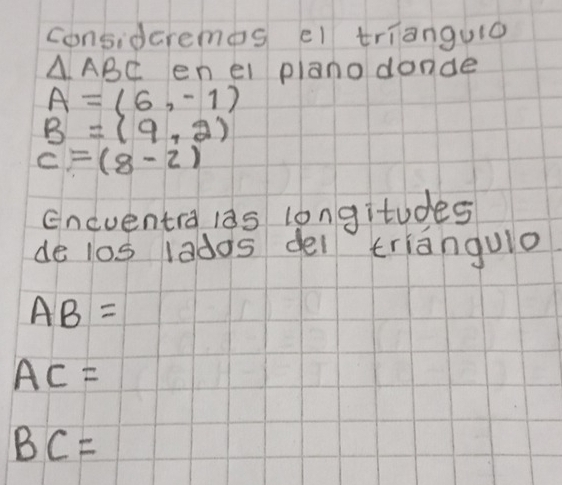 consideremos el tríangulo
Δ ABC en el plano donde
A = (6, -1)
B = (9, 2)
C = (8 - 2)
Encuentra las longitudes
de los lados del triángulo
AB =
AC =
BC =